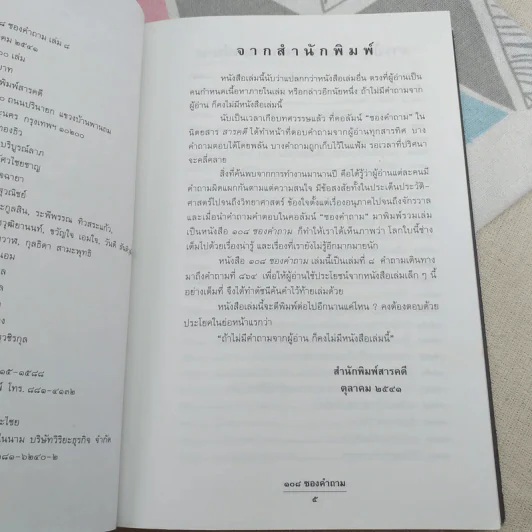 ๘ ซองคำถาม เล่ม ๘
าคม ๒๕๔๑
๐๐ เล่ม
บาท
พิมพ์สารคดี
๐ ถนนปรินายก แขวงบ้านพานถม
นคร กรุงเทพฯ ๑๐๒๐๐
จากสำนักพิมพ์
หนังสือเล่มนี้นับว่าแปลกกว่าหนังสือเล่มอื่น ตรงที่ผู้อ่านเป็น
คนกำหนดเนื้อหาภายในเล่ม หรือกล่าวอีกนัยหนึ่ง ถ้าไม่มีคำถามจาก
ผู้อ่าน ก็คงไม่มีหนังสือเล่มนี้
นับเป็นเวลาเกือบทศวรรษแล้ว ที่คอลัมน์ "ซองคำถาม" ใน
นิตยสาร สารคดี ได้ทำหน้าที่ตอบคำถามจากผู้อ่านทุกสารทิศ บาง
คำถามตอบได้โดยพลัน บางคำถามถูกเก็บไว้ในแฟ้ม รอเวลาที่ปริศนา
จะคลี่คลาย
สิ่งที่ค้นพบจากการทำงานมานานปี คือได้รู้ว่าผู้อ่านแต่ละคนมี
คำถามผิดแผกกันตามแต่ความสนใจ มีข้อสงสัยทั้งในประเด็นประวัติ-
ศาสตร์ไปจนถึงวิทยาศาสตร์ ข้องใจตั้งแต่เรื่องอนุภาคไปจนถึงจักรวาล
และเมื่อนำคำถามคำตอบในคอลัมน์ "ซองคำถาม" มาพิมพ์รวมเล่ม
เป็นหนังสือ ๑๐๘ ซองคำถาม ก็ทำให้เราได้เห็นภาพว่า โลกใบนี้ช่าง
เต็มไปด้วยเรื่องน่ารู้ และเรื่องที่เรายังไม่รู้อีกมากมายนัก
หนังสือ ๑๐๘ ซองคำถาม เล่มนี้เป็นเล่มที่ ๘ คำถามเดินทาง
มาถึงคำถามที่ ๘๖๔ เพื่อให้ผู้อ่านใช้ประโยชน์จากหนังสือเล่มเล็ก ๆ นี้
อย่างเต็มที่ จึงได้ทำดัชนีค้นคำไว้ท้ายเล่มด้วย
หนังสือเล่มนี้จะตีพิมพ์ต่อไปอีกนานแค่ไหน ? คงต้องตอบด้วย
ประโยคในย่อหน้าแรกว่า
"ถ้าไม่มีคำถามจากผู้อ่าน ก็คงไม่มีหนังสือเล่มนี้"
สำนักพิมพ์สารคดี
ตุลาคม ๒๕๔๑
๑๐๘ ซองคำถาม
๕
๑๕-๑๕๘๘
โทร. ๘๘๑-๔๑๓๒
ในนาม บริษัทวิริยะธุรกิจ จำกัด
๐๘๑-๖๒๔๐-๒